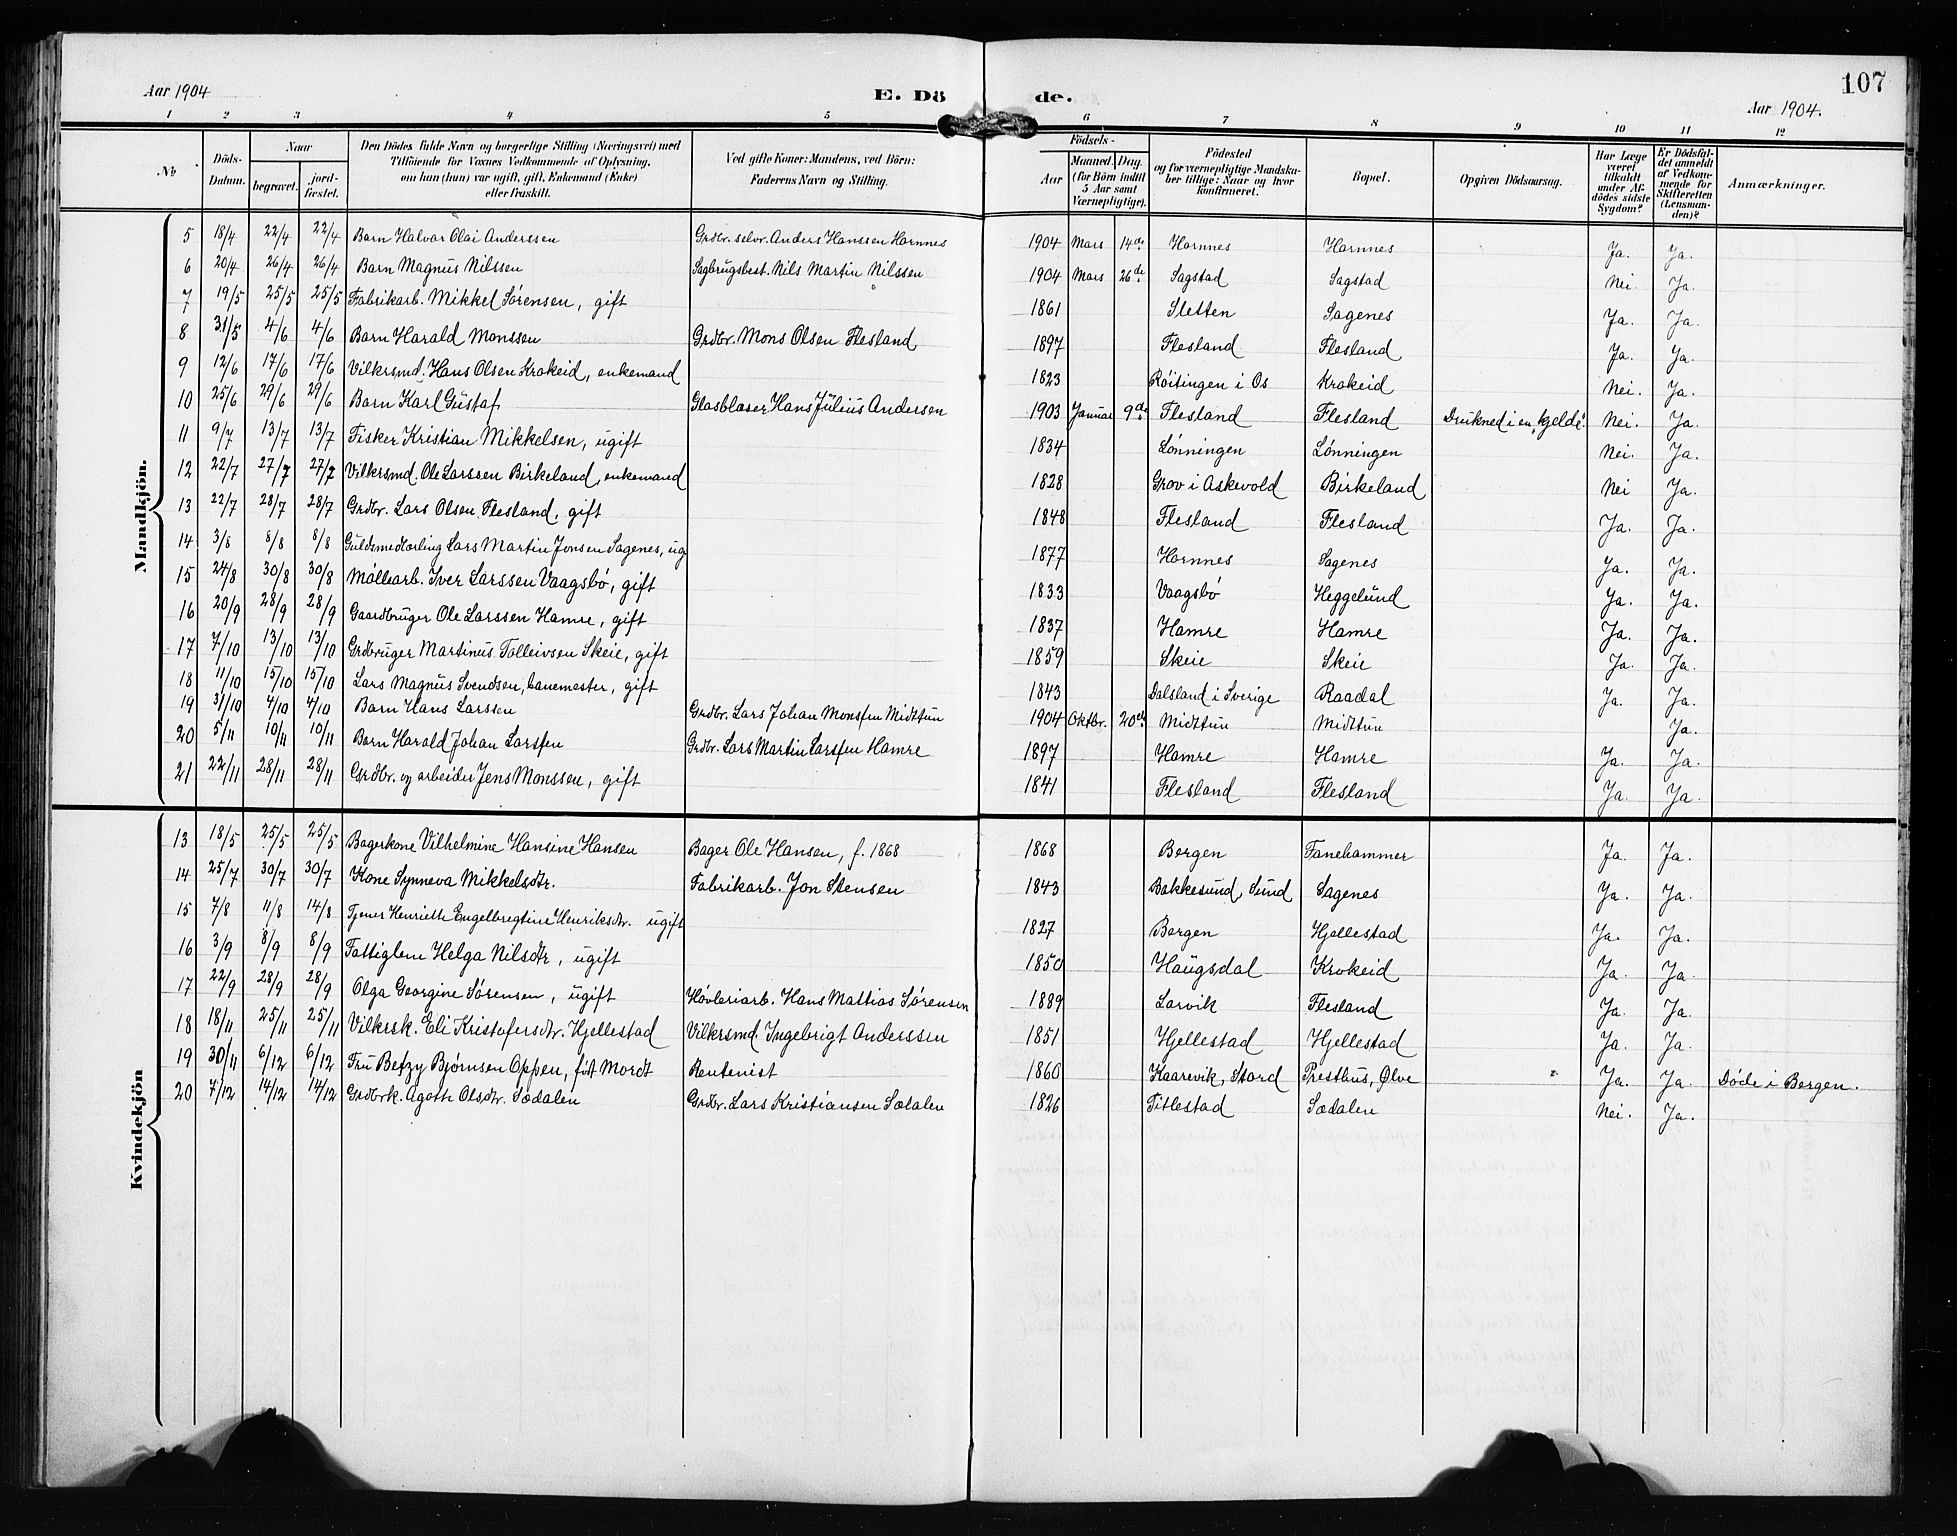 107
Aar 1904 E. Dö de. Aar 1904.
1 2 3 4 5 6 7 8 9 10 11 12
No
Döds-Datum.
Naar
begravet.
jord-fæstet.
Den Dödes fulde Navn og borgerlige Stilling (Næringsvei) med
Tilföiende for Voxnes Vedkommende af Oplysning,
om han (hun) var ugift, gift, Enkemand (Enke)
eller fraskilt.
Ved gifte Koner: Mandens, ved Börn:
Faderens Navn og Stilling.
Födsels-
Aar
Maaned. Dag.
(for Börn indtil
5 Aar samt
Værnepligtige).
Födested
og for værnepligtige Mandska-
ber tillige: Naar og hvor
konfirmeret.
Bopæl.
Opgiven Dödsaarsag.
Har Læge
været
tilkaldt
under Af-
dödes sidste
Sygdom?
Er Dödsfal-
det anmeldt
af Vedkom-
mende for
Skifteretten
(Lensman-
den)?
Anmærkninger.
Mandkjön.
5 18/4 22/4 22/4 Barn Halvar Olai Anderssen Grdbr. selvr. Anders Hanssen Hamnes 1904 Mars 14de Hamnes Hamnes Ja. Ja.
6 20/4 26/4 26/4 Barn Magnus Nilssen Sagbrugsbest. Nils Martin Nilssen 1904 Mars 26de Sagstad Sagstad Nei. Ja.
7 19/5 25/5 25/5 Fabrikarb. Mikkel Sørensen, gift 1861 Sletten Sagenes Ja. Ja.
8 31/5 4/6 4/6 Barn Harald Monssen Grdbr. Mons Olsen Flesland 1897 Flesland Flesland Ja. Ja.
9 12/6 17/6 17/6 Vilkrsmd. Hans Olsen Krokeid, enkemand 1823 Röitingen i Os Krokeid Nei. Ja.
10 25/6 29/6 29/6 Barn Karl Gustaf Glasblaser Hans Julius Andersen 1903 Januar 9de Flesland Flesland Drukned i en "kjelde". Nei. Ja.
11 9/7 13/7 13/7 Fisker Kristian Mikkelsen, ugift 1834 Lønningen Lønningen Nei. Ja.
12 22/7 27/7 27/7 Vilkrsmd. Ole Larssen Birkeland, enkemand 1828 Grov i Askevold Birkeland Nei Ja.
13 22/7 28/7 28/7 Grdbr. Lars Olsen Flesland, gift 1848 Flesland Flesland Ja. Ja.
14 3/8 8/8 8/8 Guldsmedlærling Lars Martin Jonsen Sagenes, ug 1877 Hamnes Sagenes Ja. Ja.
15 24/8 30/8 30/8 Møllearb. Iver Larssen Vaagsbø, gift 1833 Vaagsbø Heggelund Ja. Ja.
16 20/9 28/9 28/9 Gaardbruger Ole Larssen Hamre, gift 1837 Hamre Hamre Ja. Ja.
17 7/10 13/10 13/10 Grdbruger Martinus Tolleivsen Skeie, gift 1859 Skeie Skeie Ja. Ja.
18 11/10 15/10 15/10 Lars Magnus Svendsen, banemester, gift 1843 Dalsland i Sverige Raadal Ja. Ja.
19 31/10 4/10 4/10 Barn Hans Larssen Grdbr. Lars Johan Monssen Midttun 1904 Oktbr. 20de Midttun Midttun Ja.
20 5/11 10/11 10/11 Barn Harald Johan Larssen Grdbr. Lars Martin Larssen Hamre 1897 Hamre Hamre Ja. Ja.
21 22/11 28/11 28/11 Grdbr. og arbeider Jens Monssen, gift 1841 Flesland Flesland Ja. Ja.
Kvindekjön
13 18/5 25/5 25/5 Bagerkone Vilhelmine Hansine Hansen Bager Ole Hansen, f. 1868 1868 Bergen Fanehammer Ja. Ja.
14 25/7 30/7 30/7 Kone Synneva Mikkelsdtr. Fabrikarb. Jon Stensen 1843 Bakkesund, Sund Sagenes Ja. Ja.
15 7/8 11/8 14/8 Tjener Henriette Engelbregtine Henriksdtr. ugift 1827 Bergen Hjellestad Ja. Ja.
16 3/9 8/9 8/9 Fattiglem Helga Nilsdtr, ugift 1850 Haugsdal Krokeid Ja. Ja.
17 22/9 28/9 28/9 Olga Georgine Sørensen, ugift Høvleriarb. Hans Mattias Sørensen 1889 Larvik Flesland Ja. Ja.
18 18/11 25/11 25/11 Vilkrsk. Eli Kristofersdtr. Hjellestad Vilkrsmd. Ingebrigt Anderssen 1851 Hjellestad Hjellestad Ja. Ja.
19 30/11 6/12 6/12 Fru Betzy Bjørnsen Oppen, født Mordt Rentenist 1860 Kaarevik, Stord Presthus, Ølve Ja. Ja. Døde i Bergen.
20 7/12 14/12 14/12 Grdbrk. Agathe Olsdtr. Sædalen Grdbr. Lars Kristiansen Sædalen 1826 Titlestad Sædalen Nei. Ja.